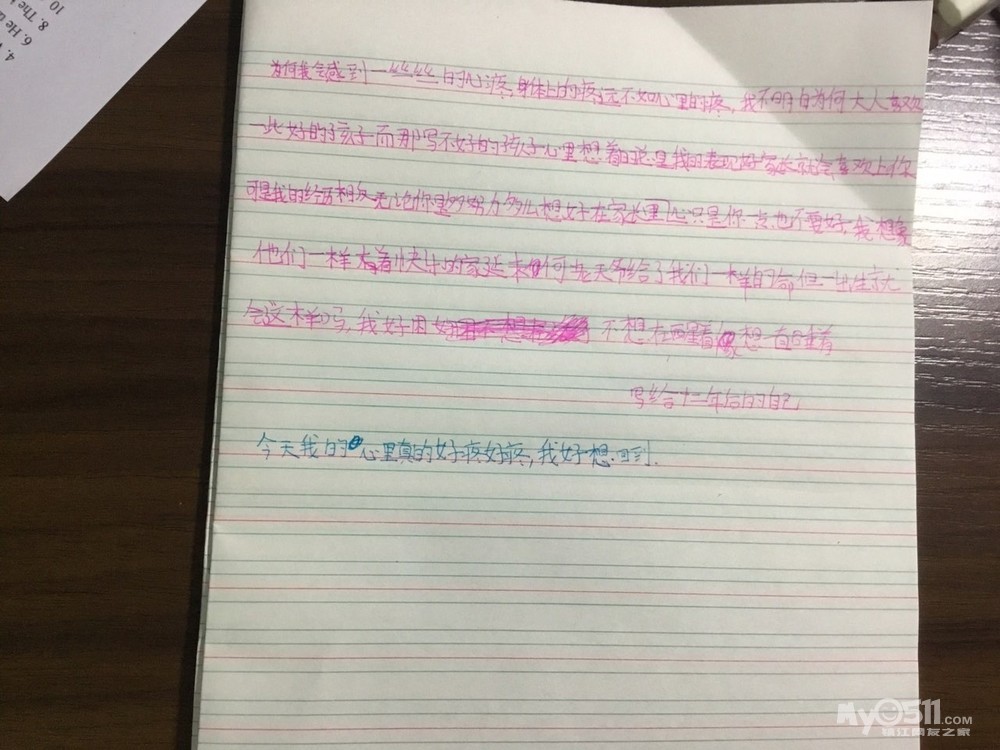 4.
6. He
8. The
10
为何我会感到一丝丝的心疼,身体上的疼远不如心里的疼,我不明白为何大人喜欢
一些好的孩子而那写不好的孩子心里想着的总是我的表现好家长就会喜欢上你
可是我的经历相反无论你是多努力多么想好在家长里心只里你一点也不要好,我想象
他们一样有着快乐的家延为何老天爷给了我们一样的命但一出生就
会这样吗,我好困 不想在醒着 想一直睡着
写给十二年后的自己
今天我的心里真的好疼好疼,我好想回到.
My0511.COM
镇江网友之家